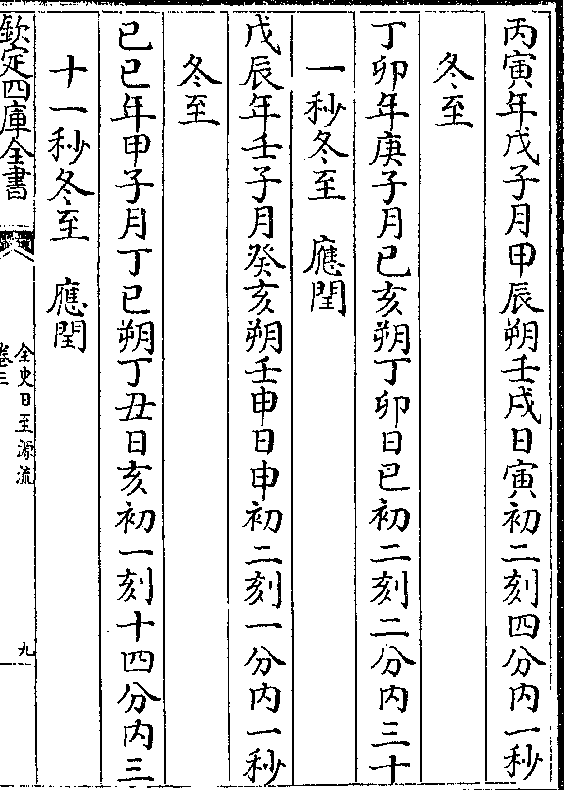 丙寅年戊子月甲辰朔壬戌日寅初二刻四分内一秒
冬至
丁卯年庚子月己亥朔丁卯日巳初二刻二分内三十
一秒冬至　應閏
戊辰年壬子月癸亥朔壬申日申初二刻一分内一秒
冬至
己巳年甲子月丁巳朔丁丑日亥初一刻十四分内三
十一秒冬至　應閏
欽定四庫全書
全史日至源流
卷三
九